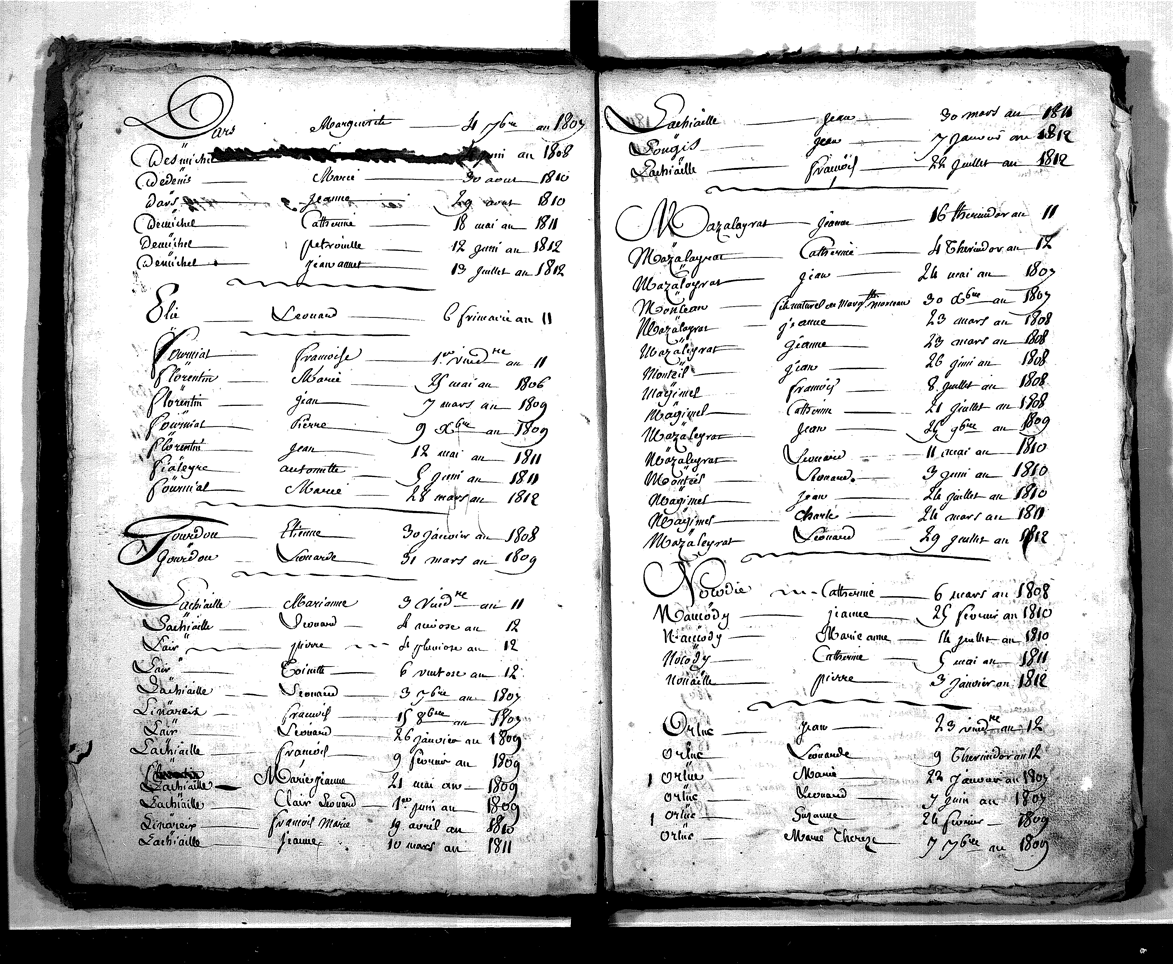 Dars Marguerite 4 7bre an 1807
Demichel juin an 1808
Dedenis Marie 30 aout 1810
Dars jeanne 29 aout 1810
Demichel Catherine 18 mai an 1811
Demichel petronille 12 juin an 1812
Demichel jeanne 13 juillet an 1812
Elie Leonard 6 frimaire an 11
fourniat francoise 1er vend.re an 11
florentin Marie 25 mai an 1806
florentin jean 7 mars an 1809
fourniat Pierre 9 Xbre an 1809
florentin jean 12 mai an 1811
fialeyre antoinette 5 juin an 1811
fourniat Marie 28 mars an 1812
Gourdon Etienne 30 janvier an 1808
Gourdon Leonarde 31 mars an 1809
Lachiaille Marianne 3 Vend.re an 11
Lachiaille Leonard 4 nivose an 12
Lair pierre 4 pluviose an 12
Lair Toinette 6 ventose an 12
Lachiaille Leonard 3 7bre an 1807
Linareis francois 15 8bre an 1807
Lair Leonard 26 janvier an 1809
Lachiaille francois 9 fevrier an 1809
Lachiaille Marie jeanne 21 mai an 1809
Lachiaille Clair Leonard 1er juin an 1809
Linareis francois Marie 19 avril an 1810
Lachiaille jeanne 10 mars an 1811
Lachiaille jean 30 mars an 1811
Lougis jean 7 janvier an 1812
Lachiaille francois 22 juillet an 1812
Mazaleyrat jeanne 16 thermidor an 11
Mazaleyrat Catherine 4 Thermidor an 12
Mazaleyrat jean 24 mai an 1807
Monteau fils naturel de Marg.tte monteau 30 Xbre an 1807
Mazaleyrat jeanne 23 mars an 1808
Mazaleyrat jeanne 23 mars an 1808
Monteil jean 26 juin an 1808
Magimel francois 8 juillet an 1808
Magimel Catherine 21 juillet an 1808
Mazaleyrat Jean 25 9bre an 1809
Mazaleyrat Leonard 11 mai an 1810
Monteil Leonard 3 juin an 1810
Magimel jean 24 juillet an 1810
Magimel Charle 24 mars an 1811
Mazaleyrat Leonard 29 juillet an 1812
Noudie Catherine 6 mars an 1808
Naucody jeanne 25 fevrier an 1810
Naucody Marie anne 14 juillet an 1810
Nocody Catherine 5 mai an 1811
Nouaille pierre 3 janvier an 1812
Orluc jean 23 vend.re an 12
orluc Leonarde 9 Thermidor an 12
1 orluc Marie 22 janvier an 1807
orluc Leonard 7 juin an 1807
1 orluc Suzanne 24 fevrier 1809
orluc Marie Therese 7 7bre an 1809